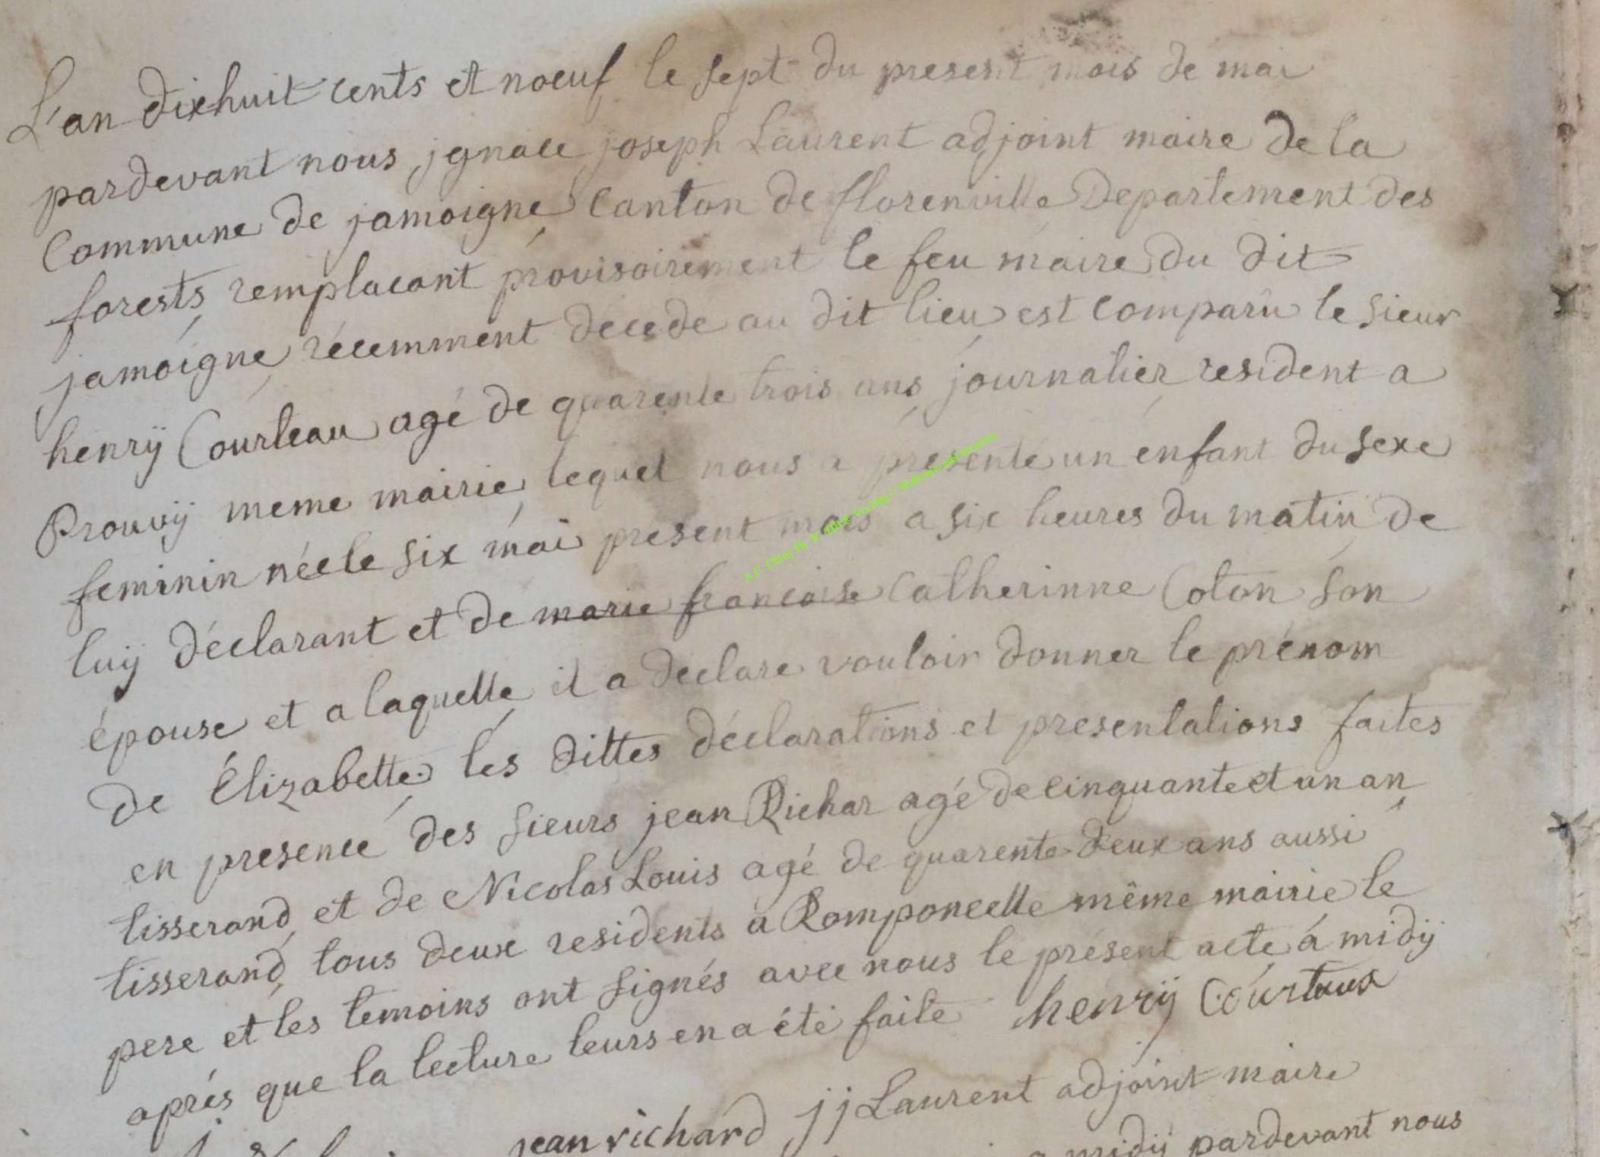 L'an dixhuit cents et noeuf le sept du present mois de mai
pardevant nous jgnace joseph Laurent adjoint maire de la
Commune de jamoigne Canton de florenville Departement des
forests remplacant provisoirement le feu maire du dit
jamoigne récemment decede au dit lieu est comparu le sieur
henrÿ Courteau agé de quarente trois ans journalier resident a
Prouvÿ meme mairie lequel nous a présenté un enfant du sexe
feminin née le six mai present mois a six heures du matin de
luÿ déclarant et de marie francoise Catherinne Coton son
épouse et a laquelle il a declare vouloir donner le prénom
de Élizabette les dittes déclarations et presentations faites
en presence des sieurs jean Richar agé de cinquante et un an
tisserand et de Nicolas Louis agé de quarente deux ans aussi
tisserand tous deux residents a Romponcelle même mairie le
pere et les temoins ont signés avec nous le présent acte á midÿ
aprés que la lecture leurs en a été faite henrÿ Courtaux
jean richard jj Laurent adjoint maire
a midÿ pardevant nous